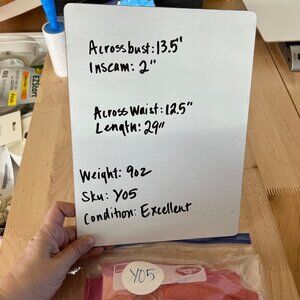 Across bust: 13.5"
Inseam: 2"
Across Waist: 12.5"
Length: 29"
Weight: 9oz
Sku: Y05
Condition: Excellent
EZ Start
Y05